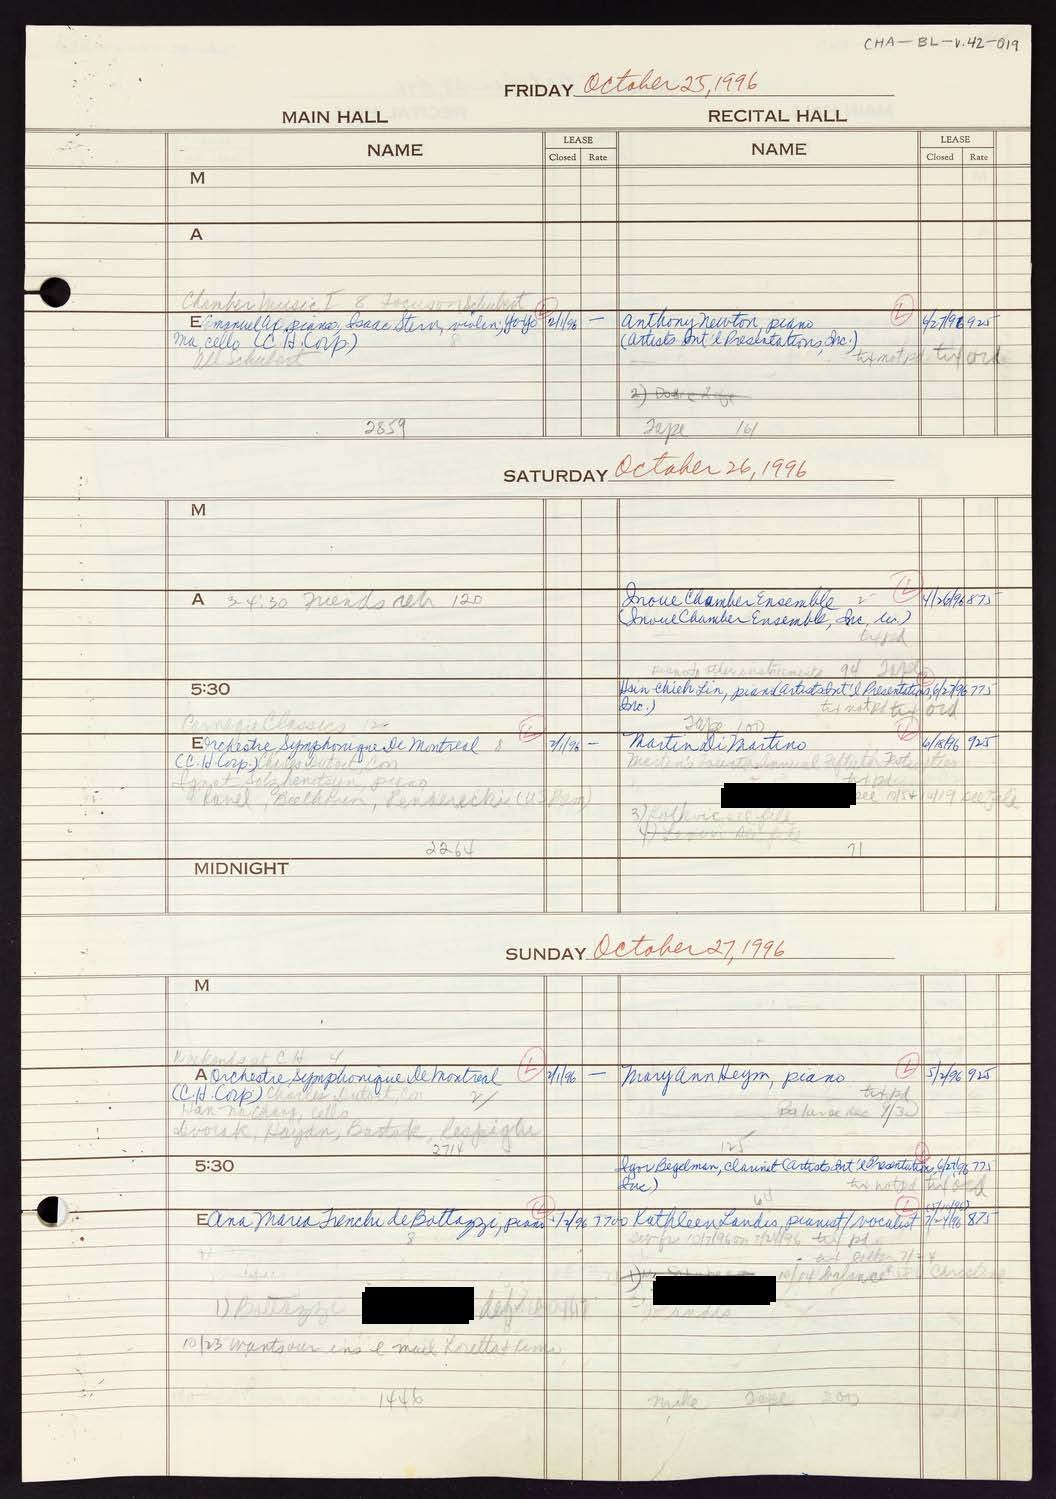 CHA-BL-v.42-019
FRIDAY October 25, 1996
MAIN HALL RECITAL HALL
NAME LEASE Closed Rate NAME LEASE Closed Rate
M
A
Chamber Music I 8 Focus on Schubert
E Emanuel Ax, piano, Isaac Stern, violin, Yo-Yo L 2/1/96 — Anthony Newton, piano L 6/27/96 925
Ma, cello (C.H. Corp) 8 (Artists Int'l Presentations, Inc.)
All Schubert tix not pd tix ord
2)
2859 Tape 161
SATURDAY October 26, 1996
M
A 3-4:30 Friends reh 120 Inoue Chamber Ensemble 2- L 4/26/96 875
(Inoue Chamber Ensemble, Inc, Lic.)
tix pd
94 Tape
5:30 Hsin Chieh Lin, piano (Artists Int'l Presentations, 6/27/96 775
Inc.) tix not pd tix ord
Carnegie Classics 12- Tape 100
E Orchestre Symphonique De Montreal 8 L 2/1/96 — Martin Di Martino L 6/18/96 925
(C.H. Corp) Charles Dutoit, Con
Ignat Solzhenitsyn, piano tix pd
Ravel, Beethoven, Penderecki (US Prem)
3)
4)
2264 71
MIDNIGHT
SUNDAY October 27, 1996
M
Weekends at C.H. 4
A Orchestre Symphonique De Montreal L 2/1/96 — Mary Ann Heym, piano L 5/2/96 925
(C.H. Corp) Charles Dutoit, Con 2/ tix pd
Han-Na Chang, Cello Balance due 9/30
Dvorak, Haydn, Bartok, Respighi
2714 125
5:30 Igor Begelman, Clarinet (Artists Int'l Presentations, 6/27/96 775
Inc) tix not pd tix ord
64
E Ana Maria Trenchi de Bottazzi, piano L 7700 Kathleen Landis, pianist/vocalist L 7/24/96 875
8 tix pd
1) 10/14 balance
1) Bottazzi Landis
10/23 wants our ins e mail
1446 Mike Tape 200